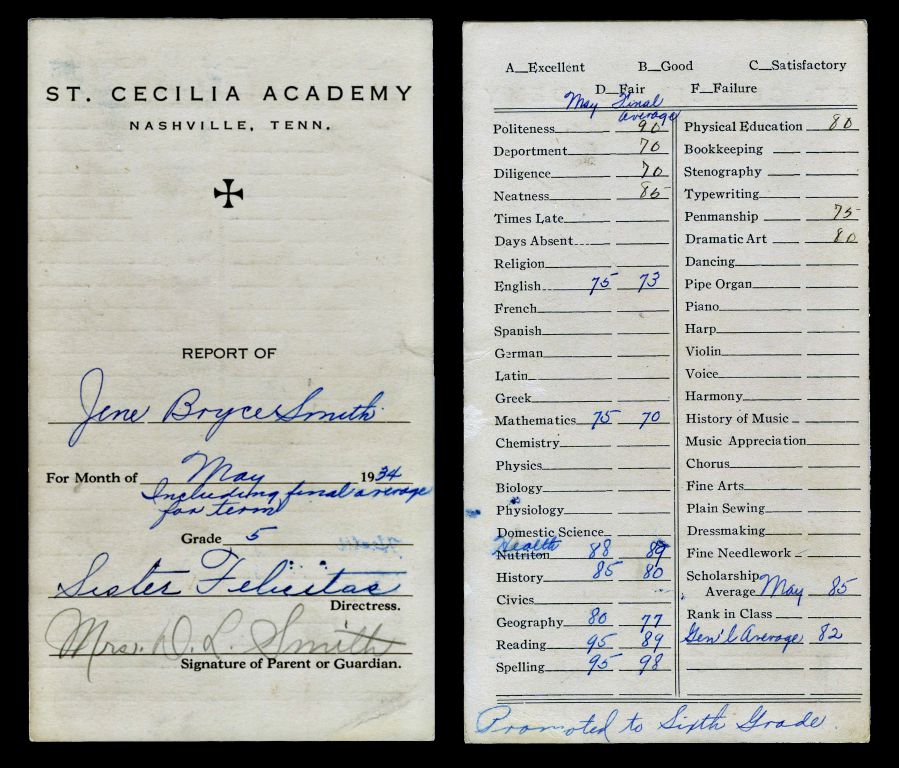 ST. CECILIA ACADEMY
NASHVILLE, TENN.
REPORT OF
Jene Bryce Smith
For Month of May 1934
Including final average
for term
Grade 5
Sister Felicitas
Directress.
Mrs. D. L. Smith
Signature of Parent or Guardian.
A—Excellent B—Good C—Satisfactory
D—Fair F—Failure
May Final
average
Politeness 90
Deportment 70
Diligence 70
Neatness 85
Times Late
Days Absent
Religion
English 75 73
French
Spanish
German
Latin
Greek
Mathematics 75 70
Chemistry
Physics
Biology
Physiology
Domestic Science
Health
Nutriton 88 89
History 85 80
Civics
Geography 80 77
Reading 95 89
Spelling 95 98
Physical Education 80
Bookkeeping
Stenography
Typewriting
Penmanship 75
Dramatic Art 80
Dancing
Pipe Organ
Piano
Harp
Violin
Voice
Harmony
History of Music
Music Appreciation
Chorus
Fine Arts
Plain Sewing
Dressmaking
Fine Needlework
Scholarship
Average May 85
Rank in Class
Gen'l Average 82
Promoted to Sixth Grade.